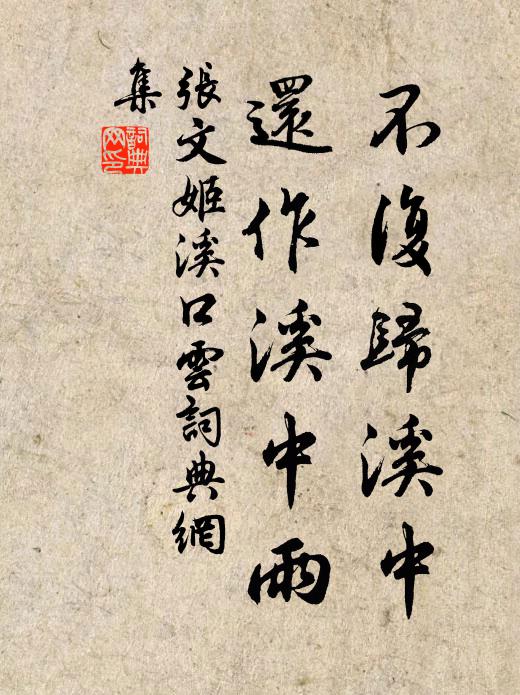 不復歸溪中
還作溪中雨
張文姬溪口雲詞典網
集
詞典
網印